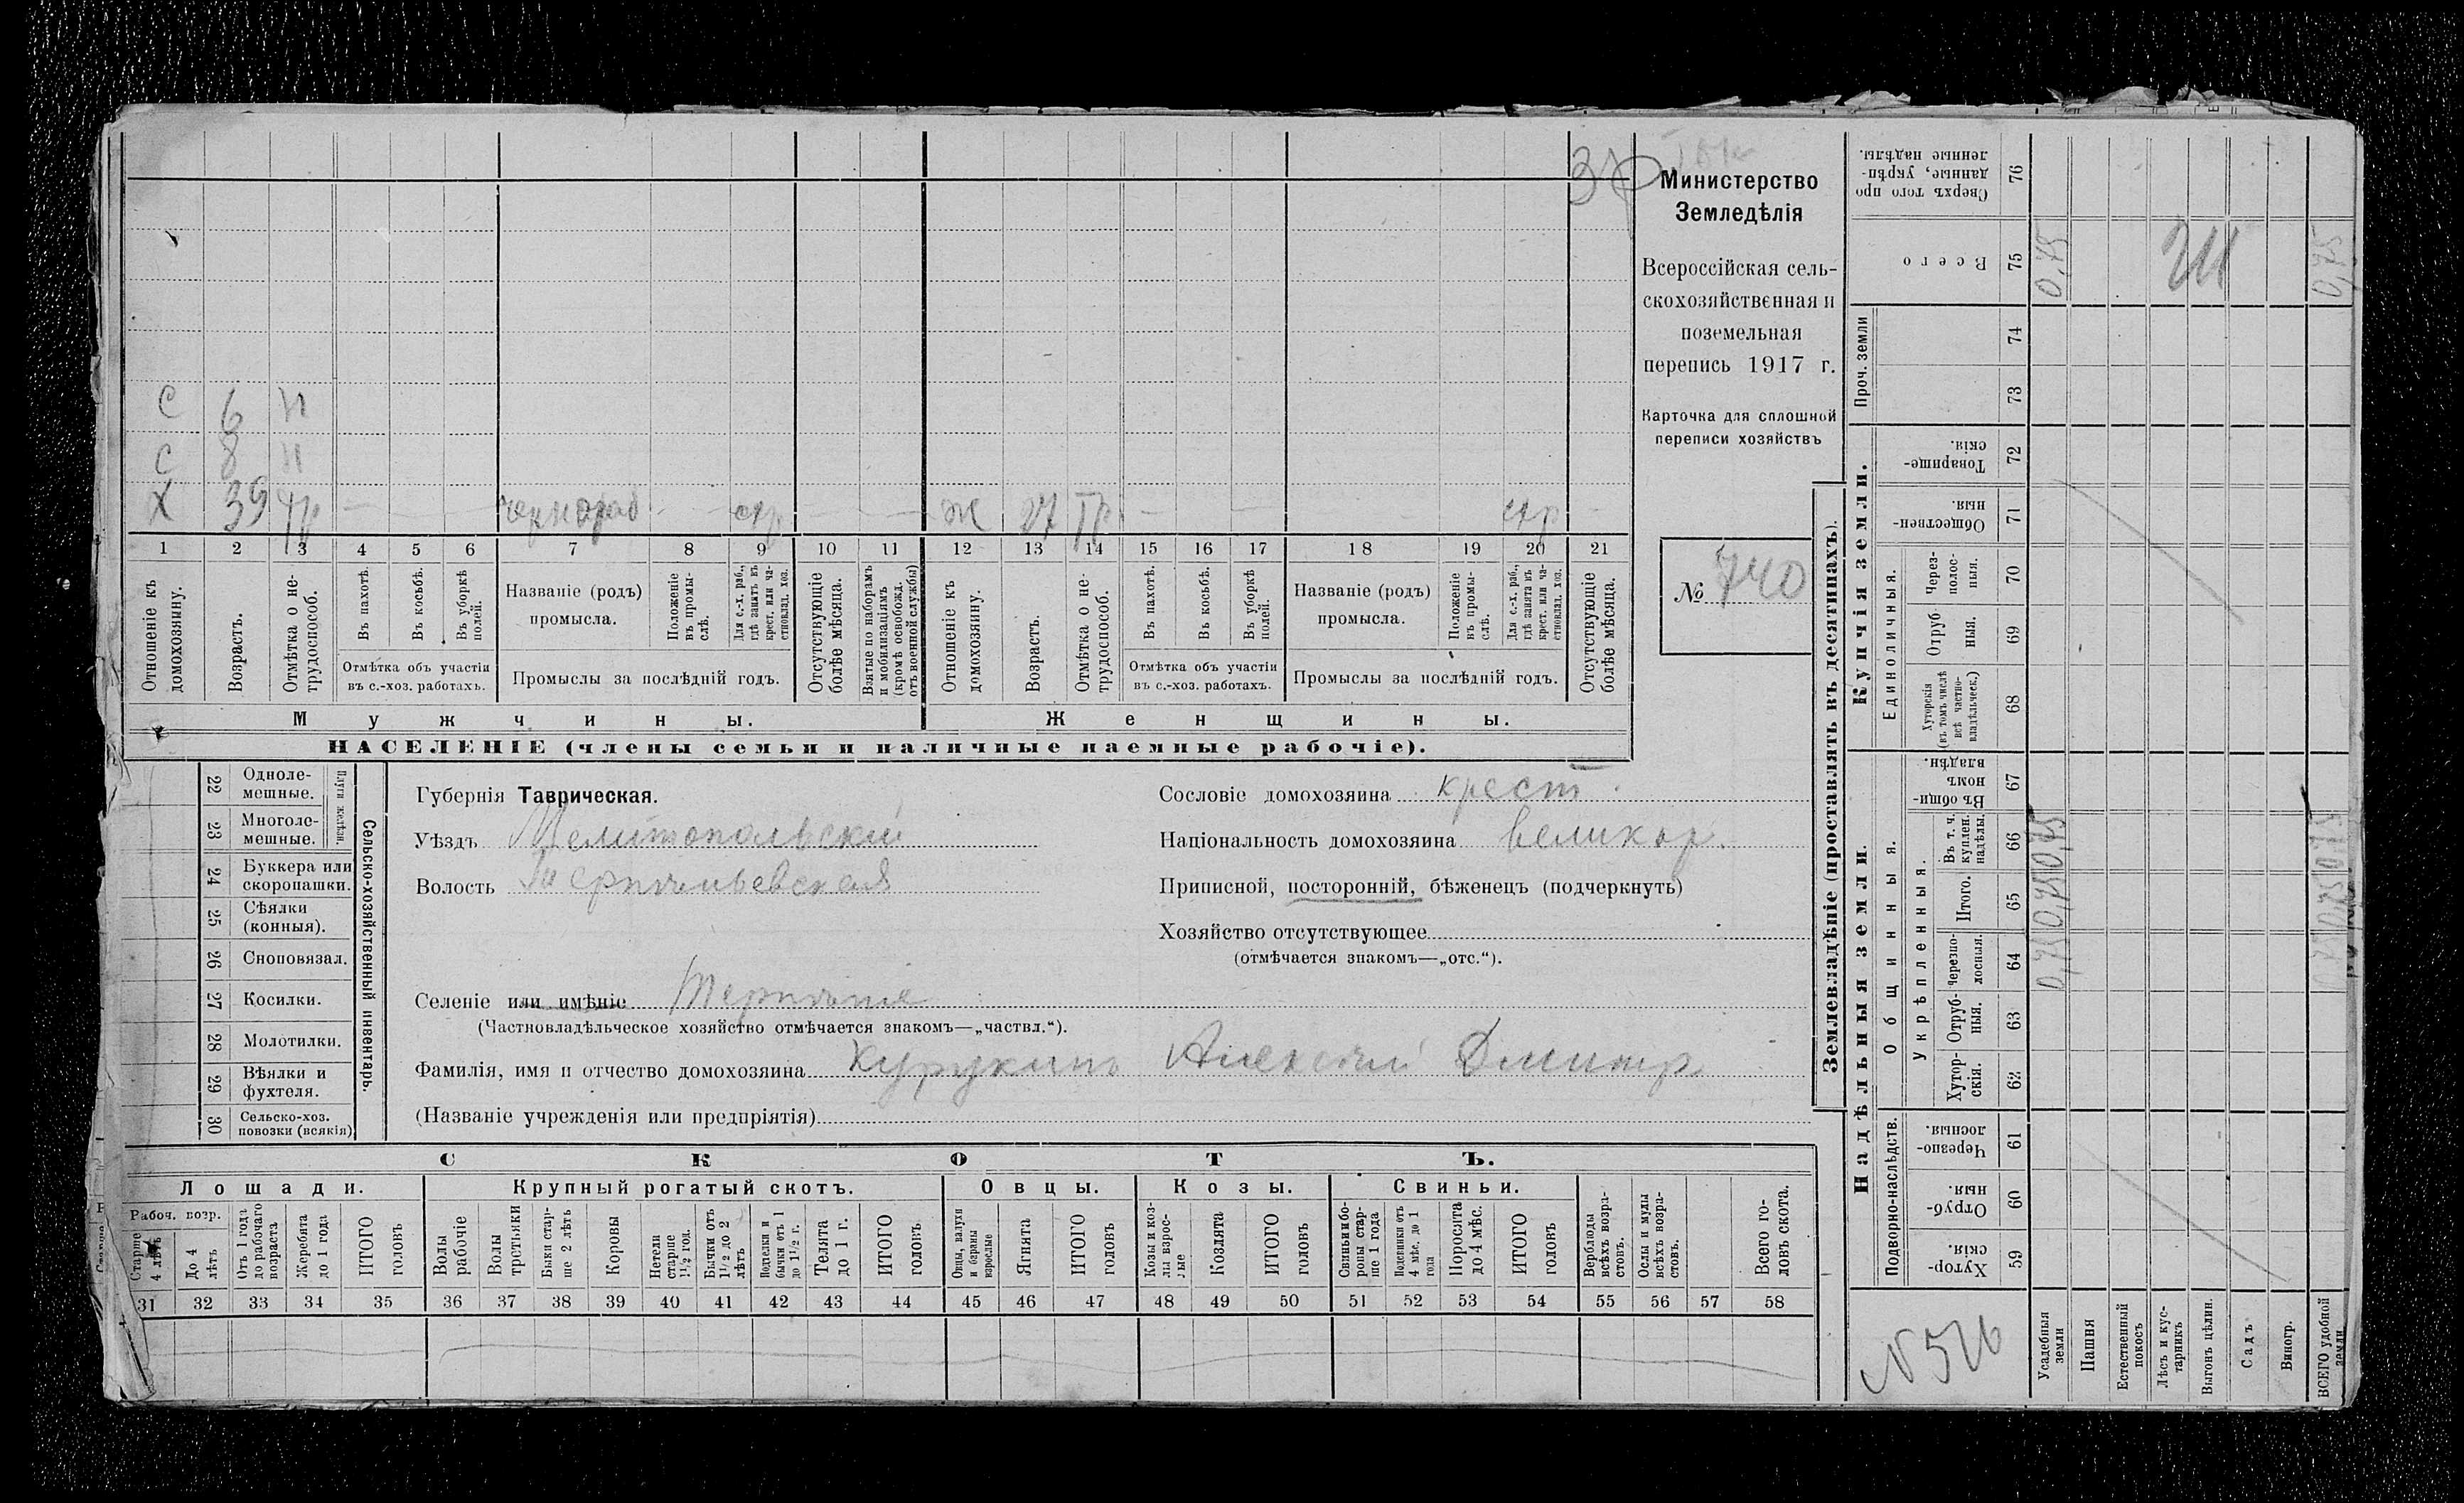 Министерство
Земледѣлія
Всероссійская сель-
скохозяйственная и
поземельная
перепись 1917 г.
Карточка для сплошной
переписи хозяйствъ
№ 740
С 6 Н
С 8 Н
Х 39 тр чернораб стр Ж 27 тр стр
1 2 3 4 5 6 7 8 9 10 11 12 13 14 15 16 17 18 19 20 21
Отношеніе къ домохозяину.
Возрастъ.
Отмѣтка о не-трудоспособ.
Въ пахотѣ.
Въ косьбѣ.
Въ уборкѣ полей.
Отмѣтка объ участіи
въ с.-хоз. работахъ.
Названіе (родъ)
промысла.
Положеніе въ промы-слѣ.
Для с.-х. раб., гдѣ занятъ въ крест. или ча-стновлад. хоз.
Промыслы за послѣдній годъ.
Отсутствующіе болѣе мѣсяца.
Взятые по наборамъ и мобилизаціямъ (кромѣ освобожд. отъ военной службы)
Отношеніе къ домохозяину.
Возрастъ.
Отмѣтка о не-трудоспособ.
Въ пахотѣ.
Въ косьбѣ.
Въ уборкѣ полей.
Отмѣтка объ участіи
въ с.-хоз. работахъ.
Названіе (родъ)
промысла.
Положеніе въ промы-слѣ.
Для с.-х. раб., гдѣ занята въ крест. или ча-стновлад. хоз.
Промыслы за послѣдній годъ.
Отсутствующіе болѣе мѣсяца.
Мужчины.
Женщины.
НАСЕЛЕНІЕ (члены семьи и наличные наемные рабочіе).
22 Одноле-мешные.
23 Многоле-мешные.
Плуги желѣзн.
24 Буккера или скоропашки.
25 Сѣялки (конныя).
26 Сноповязал.
27 Косилки.
28 Молотилки.
29 Вѣялки и фухтеля.
30 Сельско-хоз. повозки (всякія)
Сельско-хозяйственный инвентарь.
Губернія Таврическая.
Уѣздъ Мелитопольскій
Волость Терпѣньевская
Селеніе или имѣніе Терпѣніе
(Частновладѣльческое хозяйство отмѣчается знакомъ—„частвл.“).
Фамилія, имя и отчество домохозяина Хурукинъ Алексѣй Дмитр
(Названіе учрежденія или предпріятія)
Сословіе домохозяина крест.
Національность домохозяина великор.
Приписной, посторонній, бѣженецъ (подчеркнуть)
Хозяйство отсутствующее
(отмѣчается знакомъ—„отс.“).
СКОТЪ.
Лошади.
Крупный рогатый скотъ.
Овцы.
Козы.
Свиньи.
Рабоч. возр.
Старше 4 лѣтъ
До 4 лѣтъ
Отъ 1 года до рабочаго возраста
Жеребята до 1 года
ИТОГО головъ
Волы рабочіе
Волы третьяки
Быки стар-ше 2 лѣтъ
Коровы
Нетели старше 1½ год.
Бычки отъ 1½ до 2 лѣтъ
Подтелки и бычки отъ 1 до 1½ г.
Телята до 1 г.
ИТОГО головъ.
Овцы, валухи и бараны взрослые
Ягнята
ИТОГО головъ
Козы и коз-лы взрос-лые
Козлята
ИТОГО головъ
Свиньи и бо-ровы стар-ше 1 года
Подсвинки отъ 4 мѣс. до 1 года
Поросята до 4 мѣс.
ИТОГО головъ
Верблюды всѣхъ возра-стовъ.
Ослы и мулы всѣхъ возра-стовъ.
Всего го-ловъ скота.
31 32 33 34 35 36 37 38 39 40 41 42 43 44 45 46 47 48 49 50 51 52 53 54 55 56 57 58
Землевладѣніе (проставлять въ десятинахъ).
Надѣльныя земли.
Купчія земли.
Проч. земли
Подворно-наслѣдств.
Общинныя.
Укрѣпленныя.
Единоличныя.
Сверхъ того про-данные, укрѣп-ленные надѣлы. 76
Всего 75
74
73
Товарище-скія. 72
Обществен-ныя. 71
Через-полос-ныя. 70
Отруб-ныя. 69
Хуторскія (въ томъ числѣ всѣ частно-владѣльческ.) 68
Въ общин-номъ владѣн. 67
Въ т. ч. куплен. надѣлы. 66
Итого. 65
Черезпо-лосныя. 64
Отруб-ныя. 63
Хутор-скія. 62
Черезпо-лосныя. 61
Отруб-ныя. 60
Хутор-скія. 59
0,75 0,75
0,75 0,75 0,75
0,75 0,75 0,75
N 526
Усадебныя земли
Пашня
Естественный покосъ
Лѣсъ и кус-тарникъ
Выгонъ цѣлин.
Садъ
Виногр.
ВСЕГО удобной земли